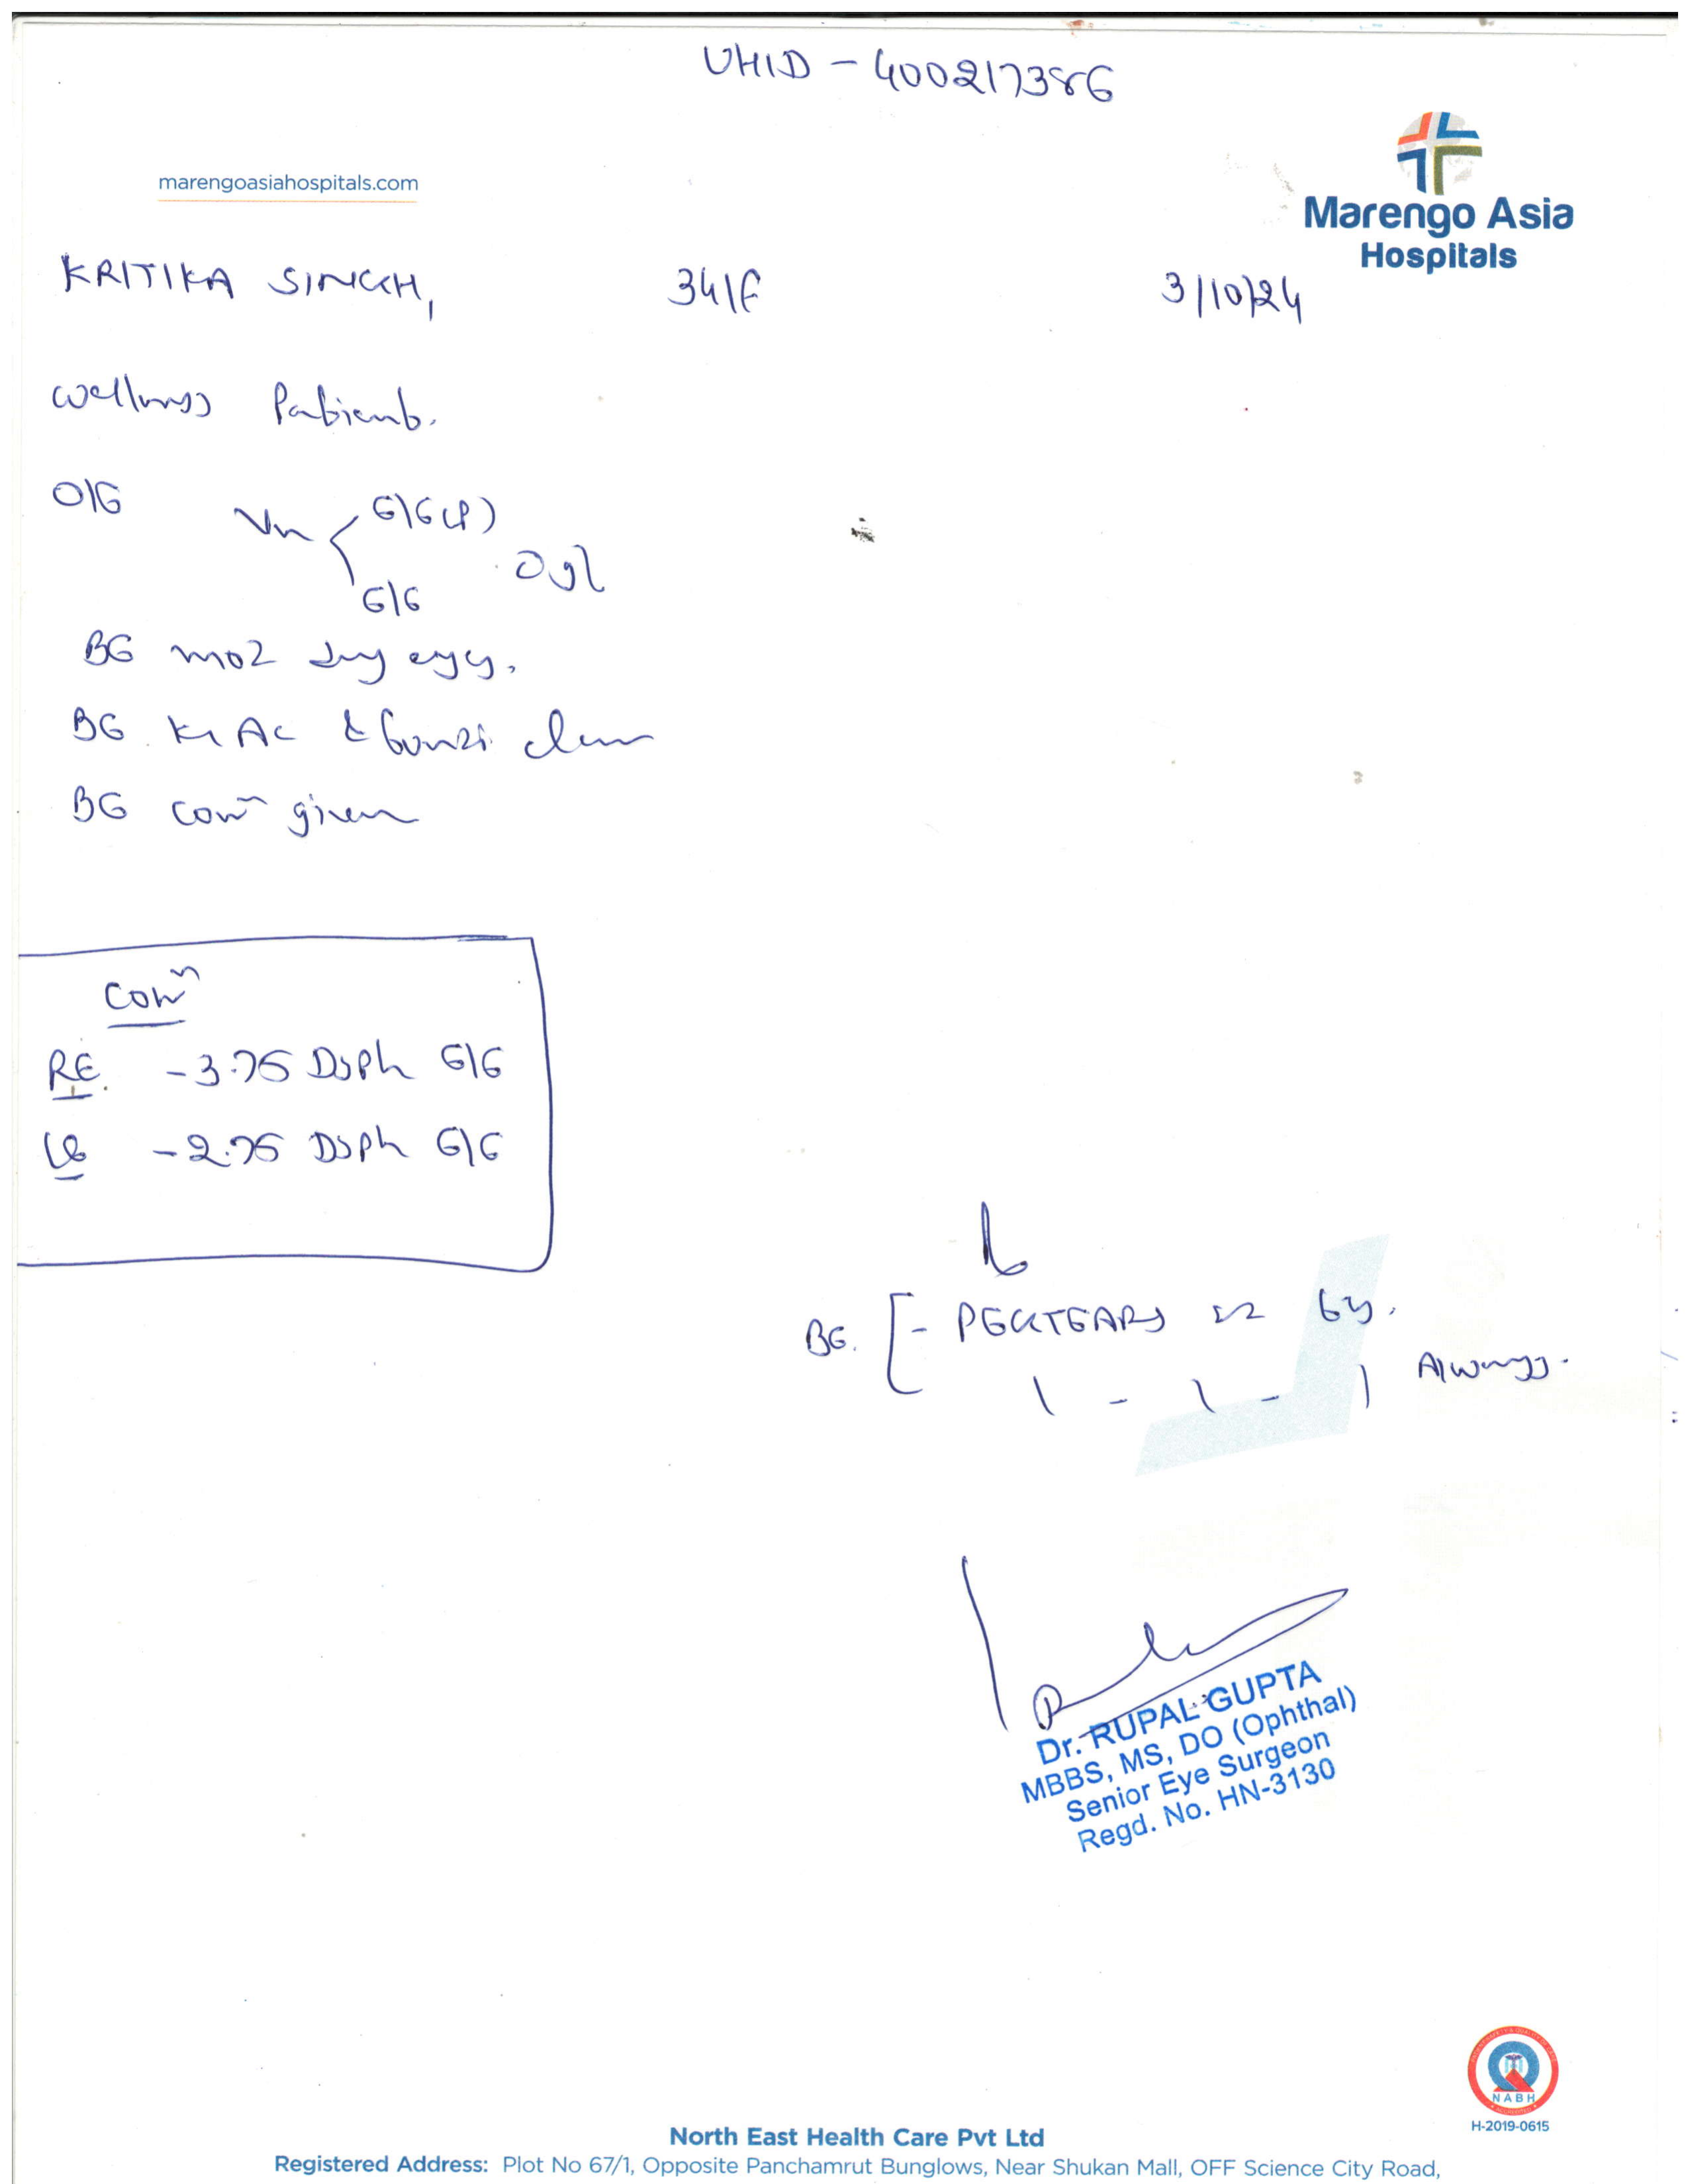 UHID - 400217386
marengoasiahospitals.com
Marengo Asia
Hospitals
KRITIKA SINGH,
34/F
3/10/24
Wellness Patient.
O/E
Vn
6/6(P)
6/6
BE mod dry eyes.
BE clear
BE corrn given
Corrn
RE. -3.75 Dsph 6/6
LE -2.75 Dsph 6/6
BE. - Always.
1 - 1 - 1
Dr. RUPAL GUPTA
MBBS, MS, DO (Ophthal)
Senior Eye Surgeon
Regd. No. HN-3130
NABH
H-2019-0615
North East Health Care Pvt Ltd
Registered Address: Plot No 67/1, Opposite Panchamrut Bunglows, Near Shukan Mall, OFF Science City Road,